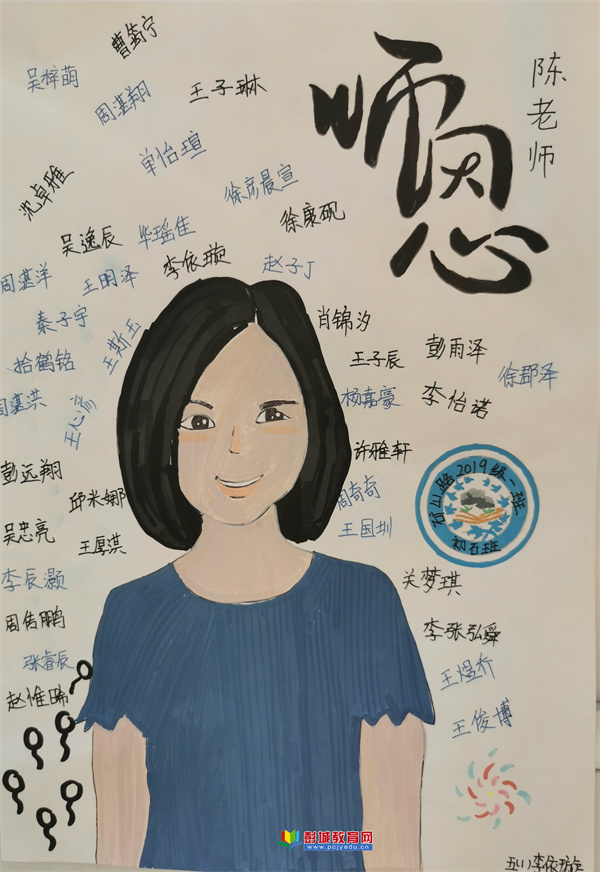 曹筠宁
吴梓萌
周湛翔
王子琳
师恩
陈老师
单怡瑄
徐彦晨宣
沈卓雅
徐康砚
吴逸辰
华瑶佳
李依璇
赵子丁
周湛洋
王明泽
秦子宇
王斯玉
肖锦汐
拾鹤铭
王子辰
彭雨泽
徐郡泽
杨嘉豪
李怡诺
彭远翔
许雅轩
邱米娜
周奇奇
石山路2019级一班
初石班
吴忠亮
王厚淇
王国圳
李辰灏
关梦琪
周传鹏
李张弘舜
张睿辰
王煜乔
赵惟晞
王俊博
彭城教育网
www.pcjyedu.cn
五(1)李依璇